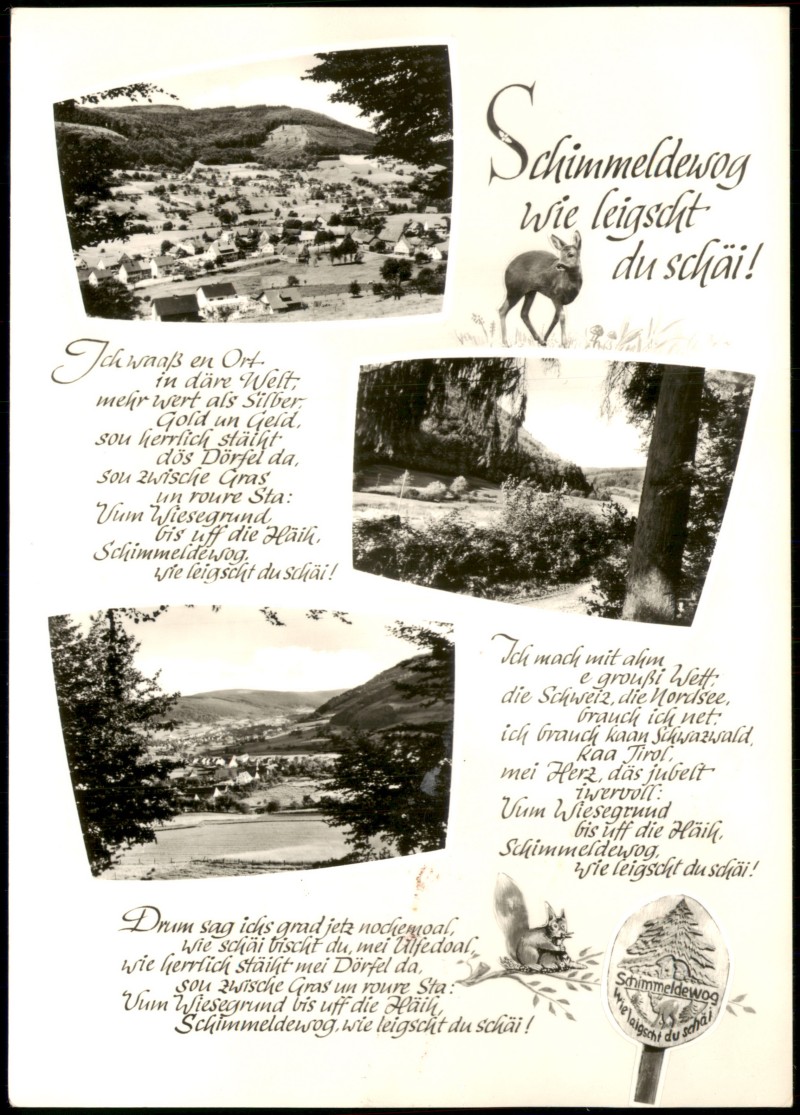 Schimmeldewog
wie leigscht
du schäi!
Ich waaß en Ort
in däre Welt,
mehr wert als Silber,
Gold un Geld,
sou herrlich stäiht
dös Dörfel da,
sou zwische Gras
un roure Sta:
Vum Wiesegrund
bis uff die Häih,
Schimmeldewog,
wie leigscht du schäi!
Ich mach mit ahm
e groußi Wett:
die Schweiz, die Nordsee,
brauch ich net:
ich brauch kaan Schwazwald,
kaa Tirol,
mei Herz, däs jubelt
iwervoll:
Vum Wiesegrund
bis uff die Häih,
Schimmeldewog,
wie leigscht du schäi!
Drum sag ichs grad jetz nochemoal,
wie schäi bischt du, mei Ulfedoal,
wie herrlich stäiht mei Dörfel da,
sou zwische Gras un roure Sta:
Vum Wiesegrund bis uff die Häih,
Schimmeldewog, wie leigscht du schäi!
Schimmeldewog
wie laigscht du schäi